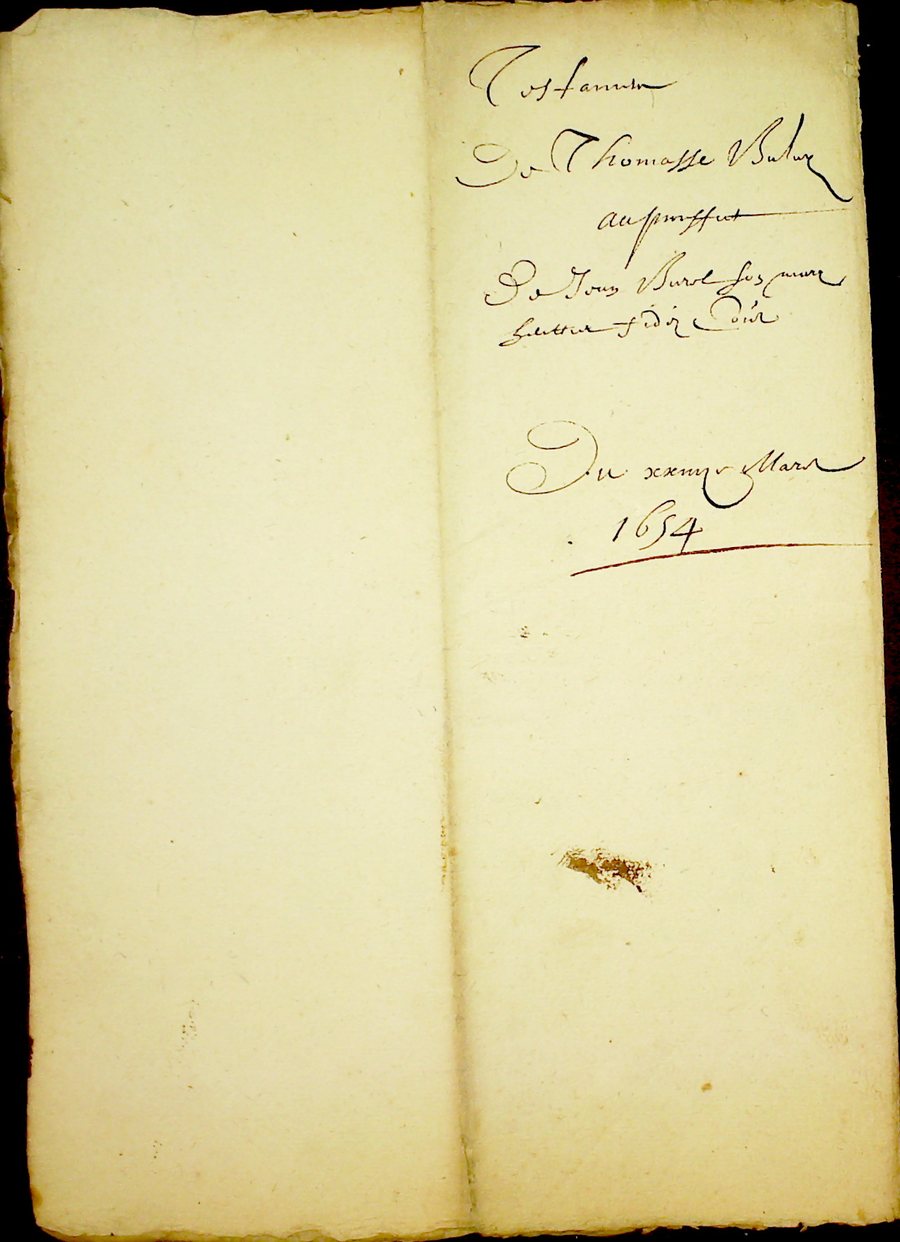 Testament
De Thomasse
au proffict
De Jean Burel son mary
herittier fidei
Du xxiiije Mars
1654